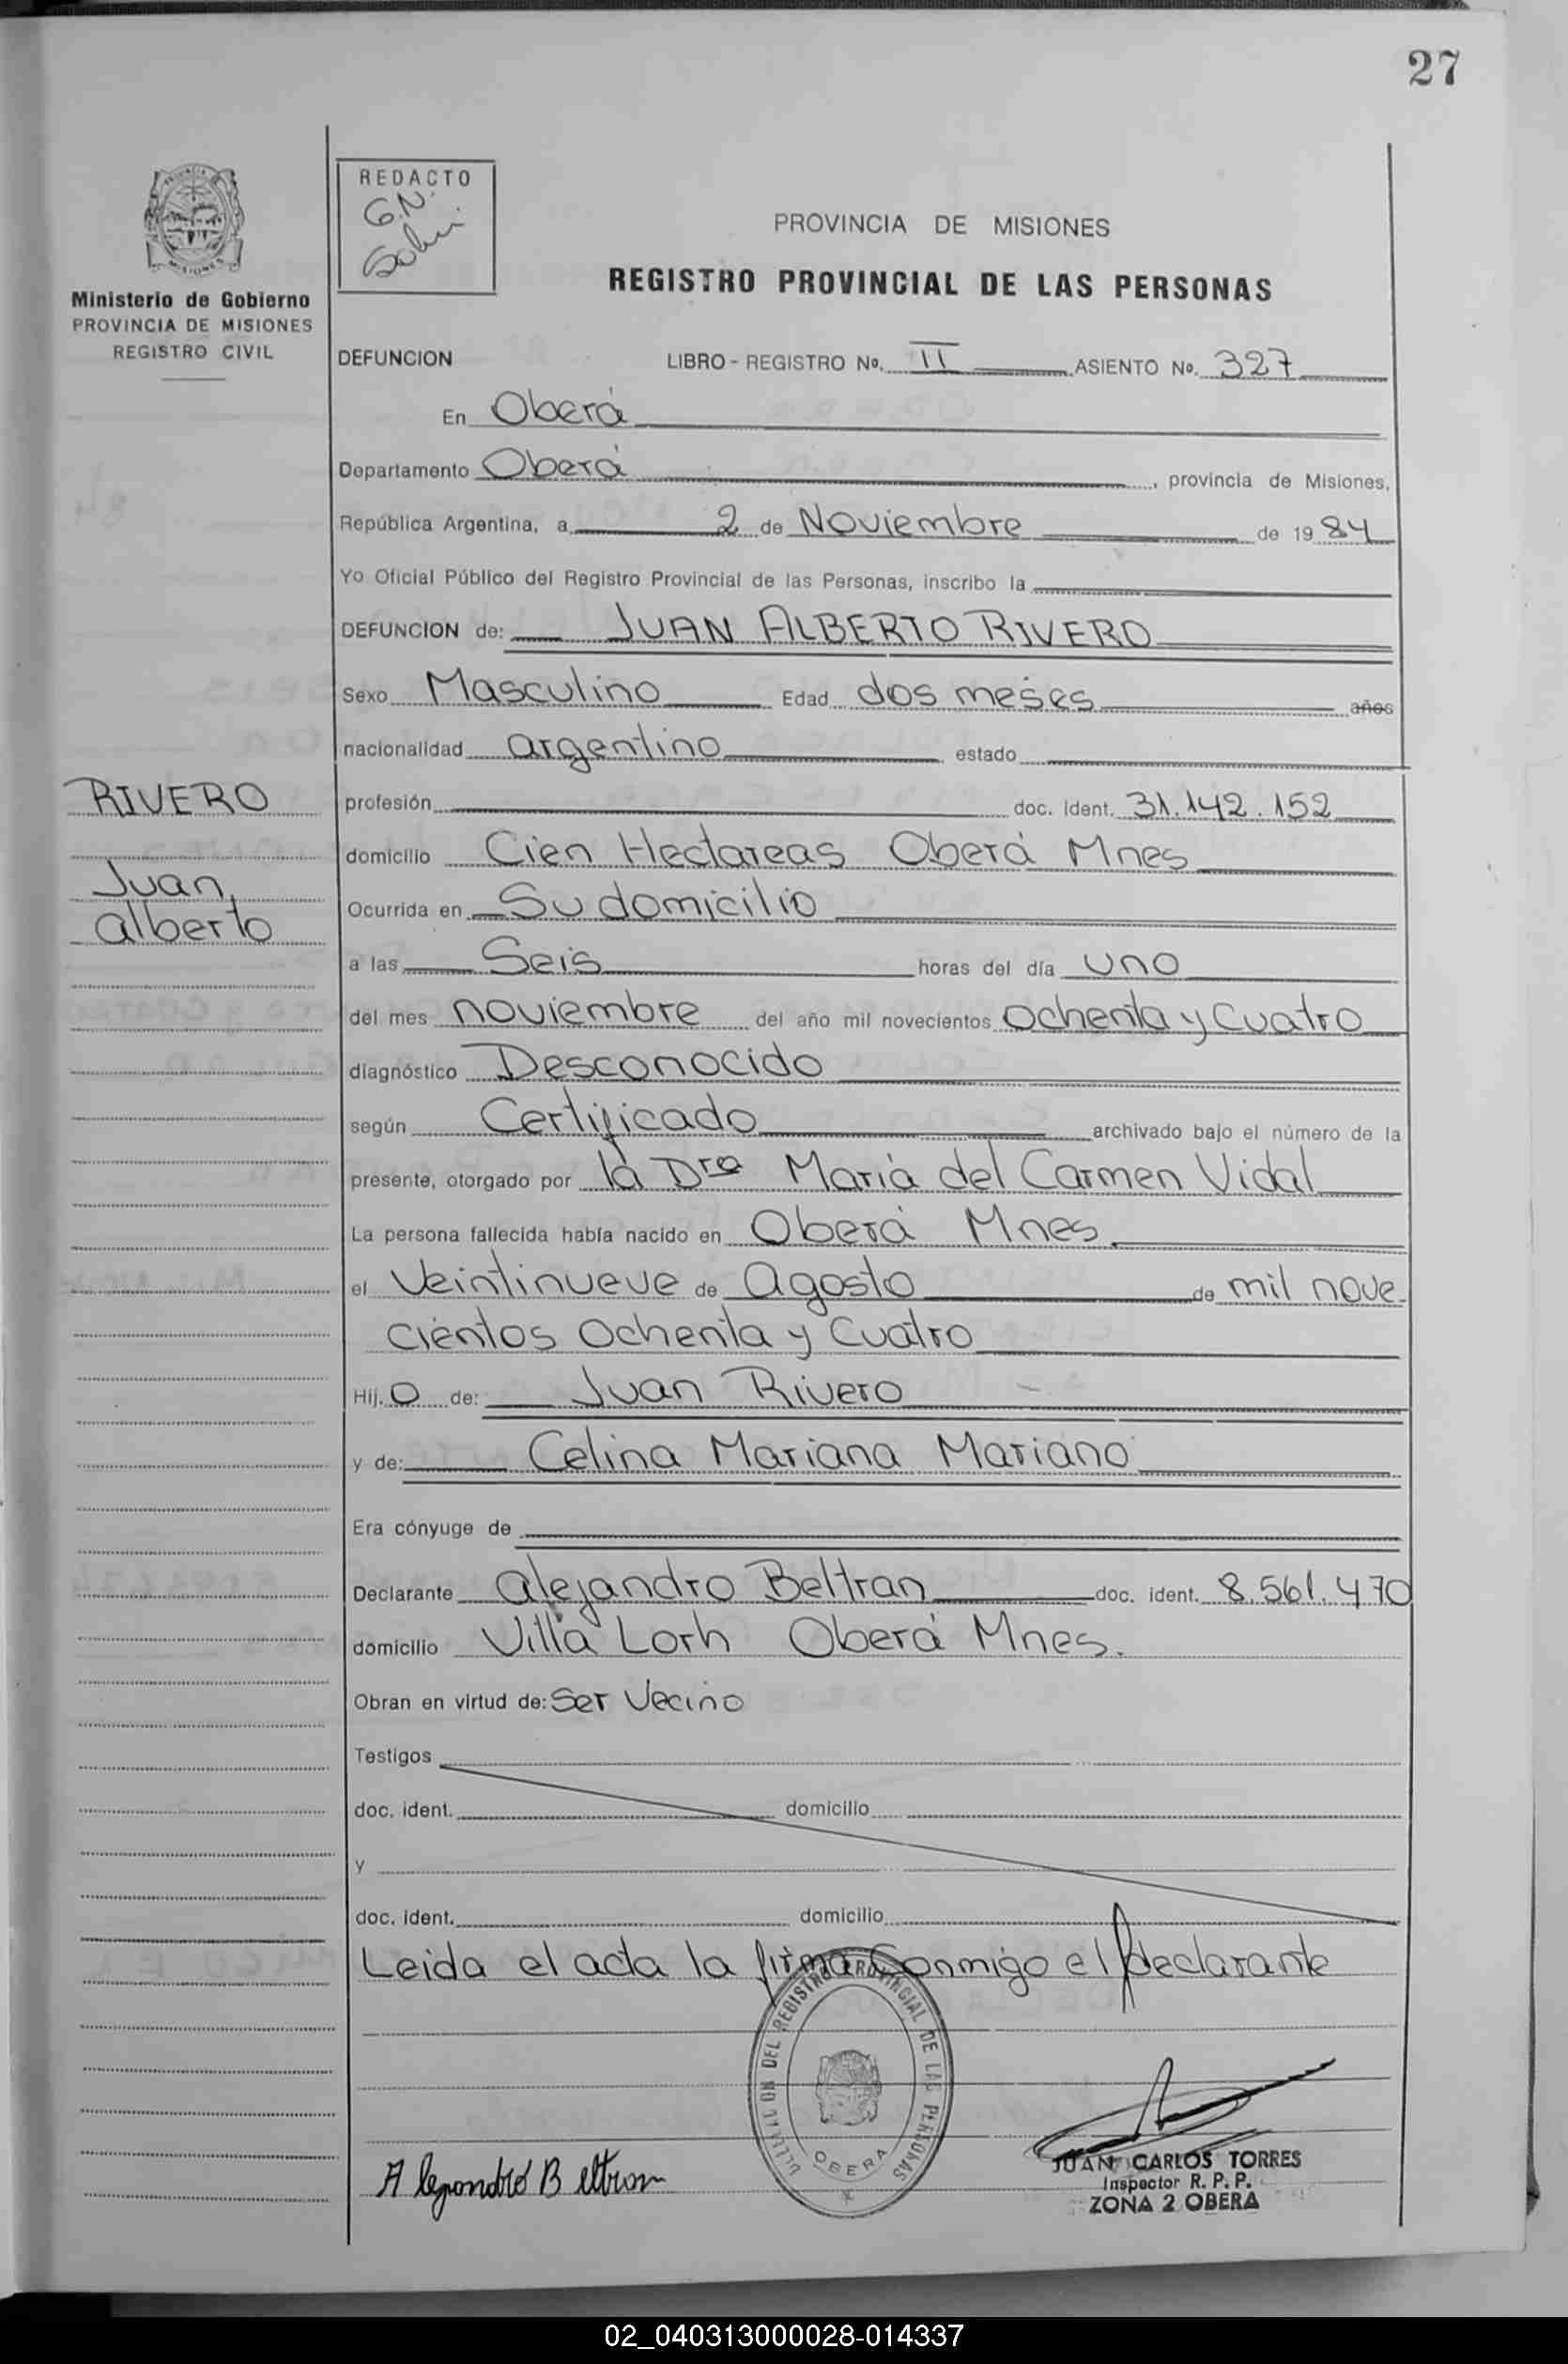 27
REDACTO
G.N.
PROVINCIA DE MISIONES
REGISTRO PROVINCIAL DE LAS PERSONAS
MISIONES
Ministerio de Gobierno
PROVINCIA DE MISIONES
REGISTRO CIVIL
DEFUNCION LIBRO - REGISTRO No. II ASIENTO No. 327
En Oberá
Departamento Oberá, provincia de Misiones,
República Argentina, a 2 de Noviembre de 19 84
Yo Oficial Público del Registro Provincial de las Personas, inscribo la
DEFUNCION de: JUAN ALBERTO RIVERO
Sexo Masculino Edad dos meses años
nacionalidad argentino estado
RIVERO
Juan
alberto
profesión doc. ident. 31.142.152
domicilio Cien Hectareas Oberá Mnes
Ocurrida en Su domicilio
a las Seis horas del día uno
del mes noviembre del año mil novecientos Ochenta y Cuatro
diagnóstico Desconocido
según Certificado archivado bajo el número de la
presente, otorgado por la Dra María del Carmen Vidal
La persona fallecida había nacido en Oberá Mnes.
el Veintinueve de Agosto de mil nove
cientos Ochenta y Cuatro
Hij. O de: Juan Rivero
y de: Celina Mariana Mariano
Era cónyuge de
Declarante alejandro Beltran doc. ident. 8.561.470
domicilio Villa Lorh Oberá Mnes.
Obran en virtud de: Ser Vecino
Testigos
doc. ident. domicilio
y
doc. ident. domicilio
Leida el acta la firma Conmigo el declarante
DEL REGISTRO PROVINCIAL DE LAS PERSONAS
OBERA
Alejandro Beltran
JUAN CARLOS TORRES
Inspector R. P. P.
ZONA 2 OBERA
02_040313000028-014337